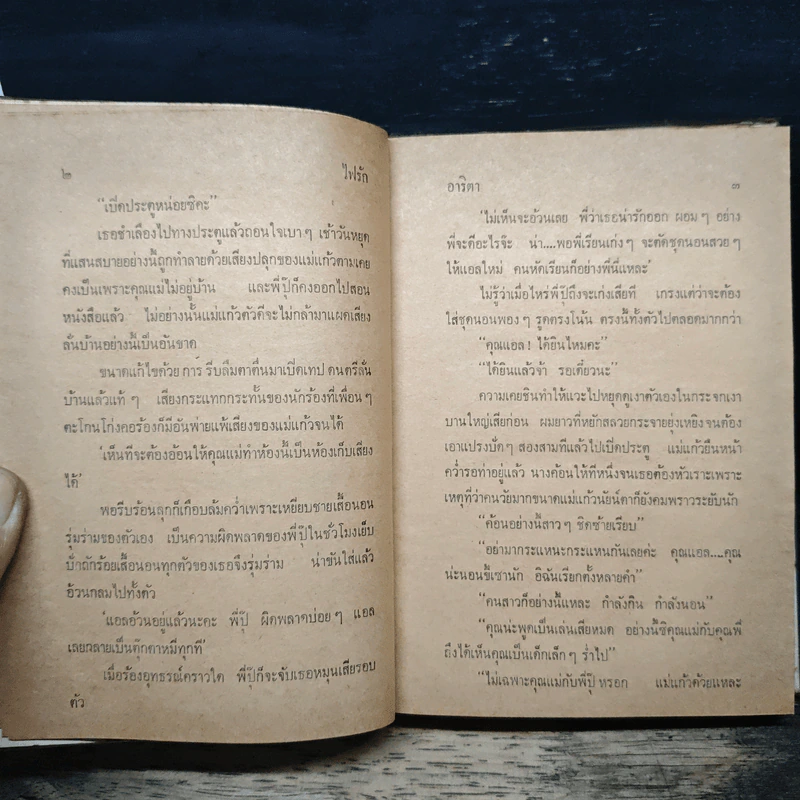 ๒ ไฟรัก
“เปิดประตูหน่อยซิคะ”
เธอชำเลืองไปทางประตูแล้วถอนใจเบา ๆ เช้าวันหยุด
ที่แสนสบายอย่างนี้ถูกทำลายด้วยเสียงปลุกของแม่แก้วตามเคย
คงเป็นเพราะคุณแม่ไม่อยู่บ้าน และพี่ปุ๊ก็คงออกไปสอน
หนังสือแล้ว ไม่อย่างนั้นแม่แก้วตัวดีจะไม่กล้ามาแผดเสียง
ลั่นบ้านอย่างนี้เป็นอันขาด
ขนาดแก้ไขด้วย การรีบลืมตาตื่นมาเปิดเทป ดนตรีลั่น
บ้านแล้วแท้ ๆ เสียงกระแทกกระทั้นของนักร้องที่เพื่อน ๆ
ตะโกนโก่งคอร้องก็มีอันพ่ายแพ้เสียงของแม่แก้วจนได้
‘เห็นทีจะต้องอ้อนให้คุณแม่ทำห้องนี้เป็นห้องเก็บเสียง
ได้’
พอรีบร้อนลุกก็เกือบล้มคว่ำเพราะเหยียบชายเสื้อนอน
รุ่มร่ามของตัวเอง เป็นความผิดพลาดของพี่ปุ๊ในชั่วโมงเย็บ
ปักถักร้อยเสื้อนอนทุกตัวของเธอจึงรุ่มร่าม น่าขันใส่แล้ว
อ้วนกลมไปทั้งตัว
‘แอลอ้วนอยู่แล้วนะคะ พี่ปุ๊ ผิดพลาดบ่อย ๆ แอล
เลยกลายเป็นตุ๊กตาหมีทุกที’
เมื่อร้องอุทธรณ์คราวใด พี่ปุ๊ก็จะจับเธอหมุนเสียรอบ
ตัว
อาริตา ๓
‘ไม่เห็นจะอ้วนเลย พี่ว่าเธอน่ารักออก ผอม ๆ อย่าง
พี่จะดีอะไรจ๊ะ น่า....พอพี่เรียนเก่ง ๆ จะตัดชุดนอนสวย ๆ
ให้แอลใหม่ คนหัดเรียนก็อย่างพี่นี่แหละ’
ไม่รู้ว่าเมื่อไหร่พี่ปุ๊ถึงจะเก่งเสียที เกรงแต่ว่าจะต้อง
ใส่ชุดนอนพอง ๆ รูดตรงโน้น ตรงนี้ทั้งตัวไปตลอดมากกว่า
“คุณแอล ! ได้ยินไหมคะ”
“ได้ยินแล้วจ้า รอเดี๋ยวนะ”
ความเคยชินทำให้แวะไปหยุดดูเงาตัวเองในกระจกเงา
บานใหญ่เสียก่อน ผมยาวที่หยักสลวยกระจายยุ่งเหยิงจนต้อง
เอาแปรงปัด ๆ สองสามทีแล้วไปเปิดประตู แม่แก้วยืนหน้า
คว่ำรอท่าอยู่แล้ว นางค้อนให้ทีหนึ่งจนเธอต้องหัวเราะเพราะ
เหตุที่ว่าคนวัยมากขนาดแม่แก้วนัยน์ตาก็ยังคมพราวระยับนัก
“ค้อนอย่างนี้สาว ๆ ชิดซ้ายเรียบ”
“อย่ามากระแหนะกระแหนกันเลยค่ะ คุณแอล....คุณ
น่ะนอนขี้เซานัก อิฉันเรียกตั้งหลายคำ”
“คนสาวก็อย่างนี้แหละ กำลังกิน กำลังนอน”
“คุณน่ะพูดเป็นเล่นเสียหมด อย่างนี้ซิคุณแม่กับคุณพี่
ถึงได้เห็นคุณเป็นเด็กเล็ก ๆ ร่ำไป”
“ไม่เฉพาะคุณแม่กับพี่ปุ๊ หรอก แม่แก้วด้วยแหละ